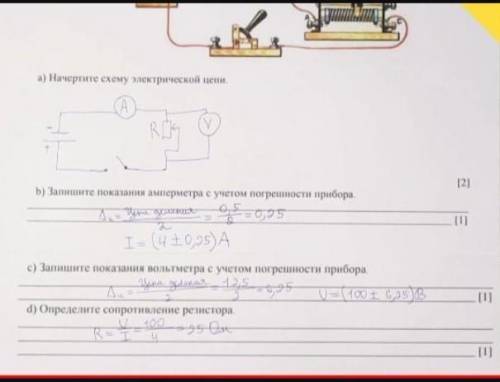 а) Начертите схему электрической цепи.
A
R
V
-
+
[2]
b) Запишите показания амперметра с учетом погрешности прибора.
Δи = цена деления / 2 = 0,5 / 2 = 0,25
[1]
I = (4 ± 0,25) A
с) Запишите показания вольтметра с учетом погрешности прибора.
Δи = цена деления / 2 = 12,5 / 2 = 6,25 V = (100 ± 6,25) В
[1]
d) Определите сопротивление резистора.
R = V / I = 100 / 4 = 25 Ом
[1]